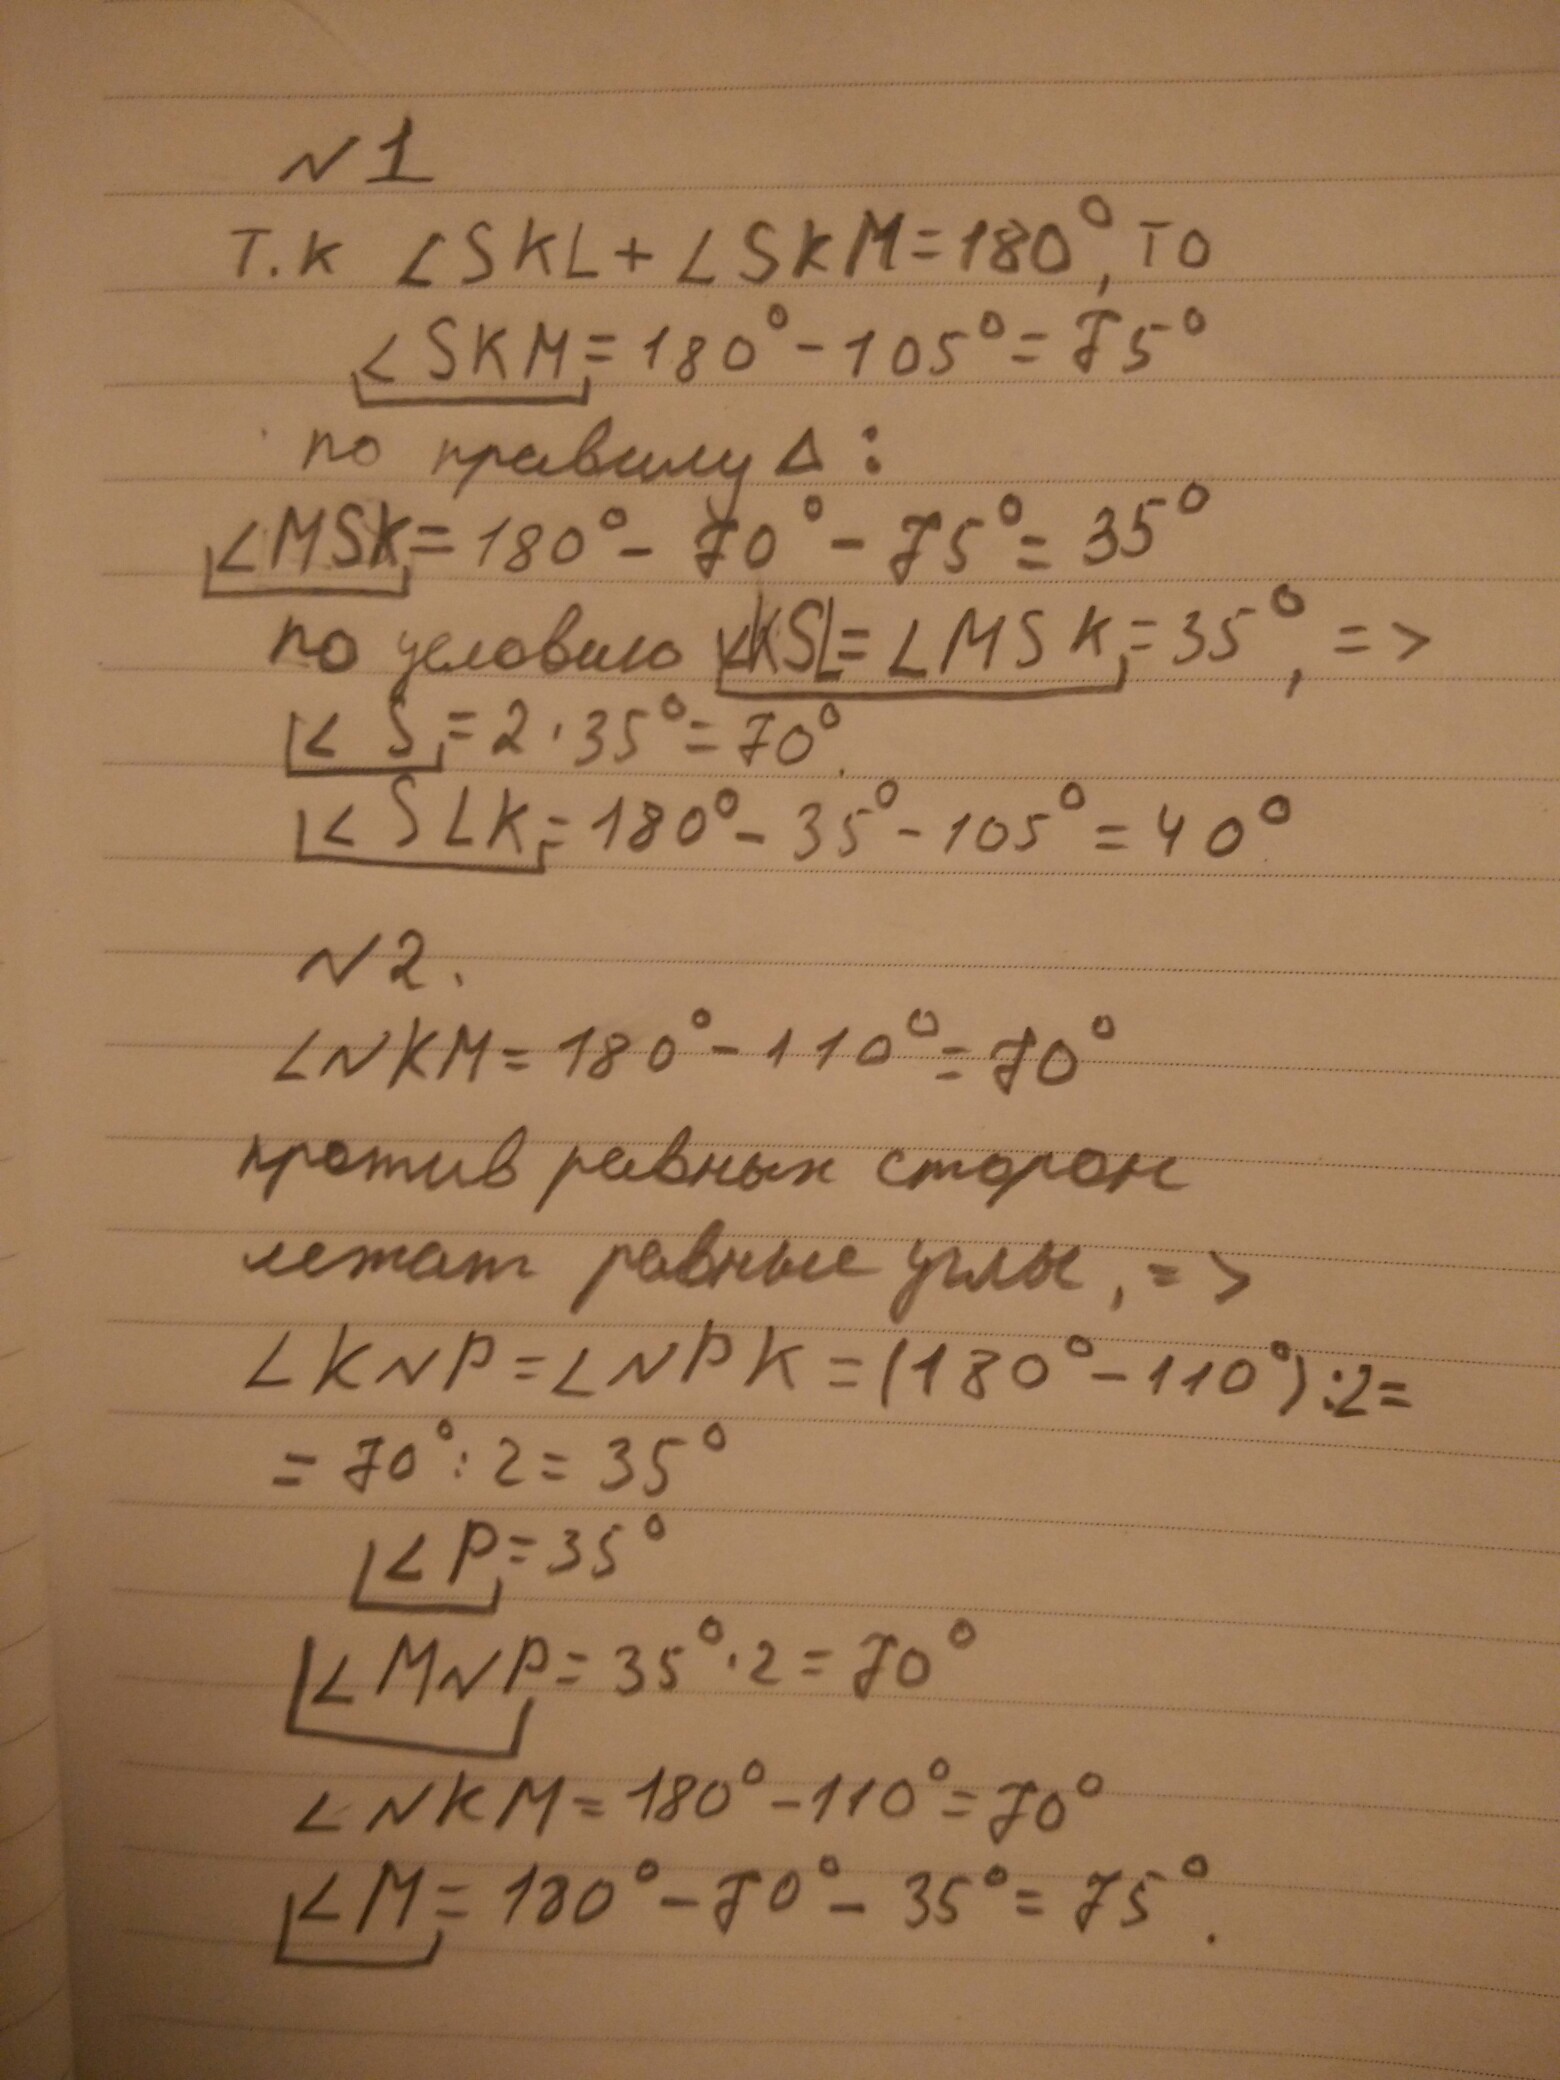 N1
т.к ∠SKL + ∠SKM = 180°, то
∠SKM = 180° - 105° = 75°
по правилу Δ :
∠MSK = 180° - 70° - 75° = 35°
по условию ∠KSL = ∠MSK = 35°, =>
∠S = 2 · 35° = 70°.
∠SLK = 180° - 35° - 105° = 40°
N2.
∠NKM = 180° - 110° = 70°
против равных сторон
лежат равные углы, =>
∠KNP = ∠NPK = (180° - 110°) : 2 =
= 70° : 2 = 35°
∠P = 35°
∠MNP = 35° · 2 = 70°
∠NKM = 180° - 110° = 70°
∠M = 180° - 70° - 35° = 75°.